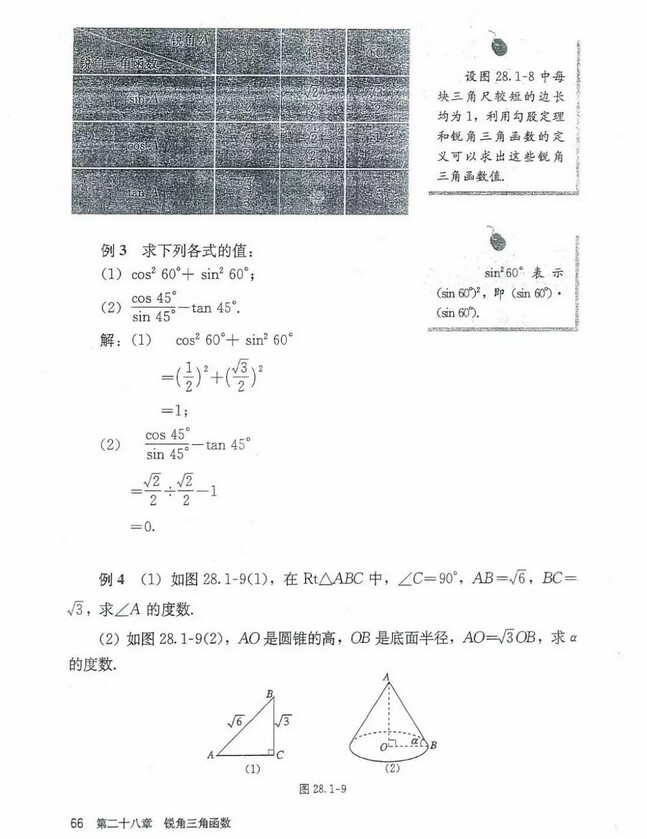 锐角A
锐角三角函数
60°
sin A
cos A
tan A
设图 28.1-8 中每
块三角尺较短的边长
均为1，利用勾股定理
和锐角三角函数的定
义可以求出这些锐角
三角函数值.
例3 求下列各式的值：
(1) cos² 60°+ sin² 60°；
(2) cos 45°/sin 45° -tan 45°.
sin²60° 表示
(sin 60°)²，即 (sin 60°)·
(sin 60°).
解：(1) cos² 60°+ sin² 60°
=(1/2)²+(√3/2)²
=1；
(2) cos 45°/sin 45° -tan 45°
=√2/2÷√2/2-1
=0.
例4 (1) 如图 28.1-9(1)，在 Rt△ABC 中，∠C=90°，AB=√6，BC=
√3，求∠A 的度数.
(2) 如图 28.1-9(2)，AO 是圆锥的高，OB 是底面半径，AO=√3OB，求 α
的度数.
B
√6
√3
A
C
(1)
A
O
α
B
(2)
图 28.1-9
66 第二十八章 锐角三角函数